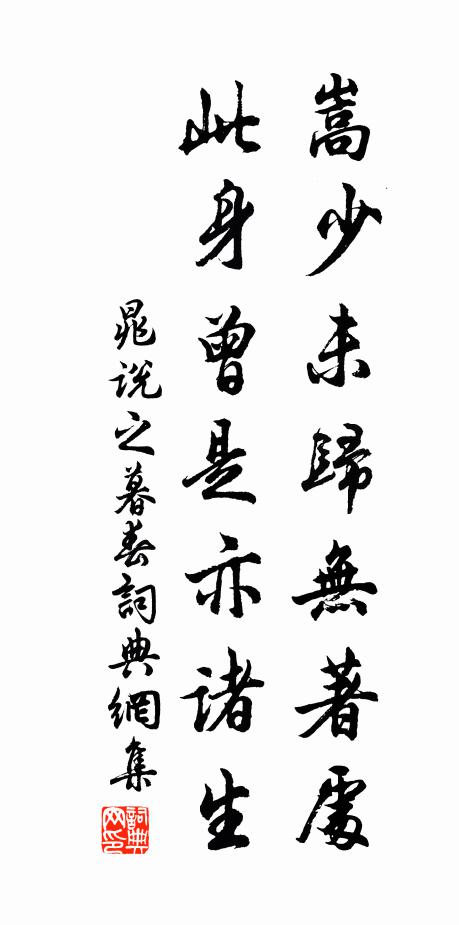 嵩少未歸無著處
此身曾是亦諸生
晁説之暮春詞典網集
詞典网印